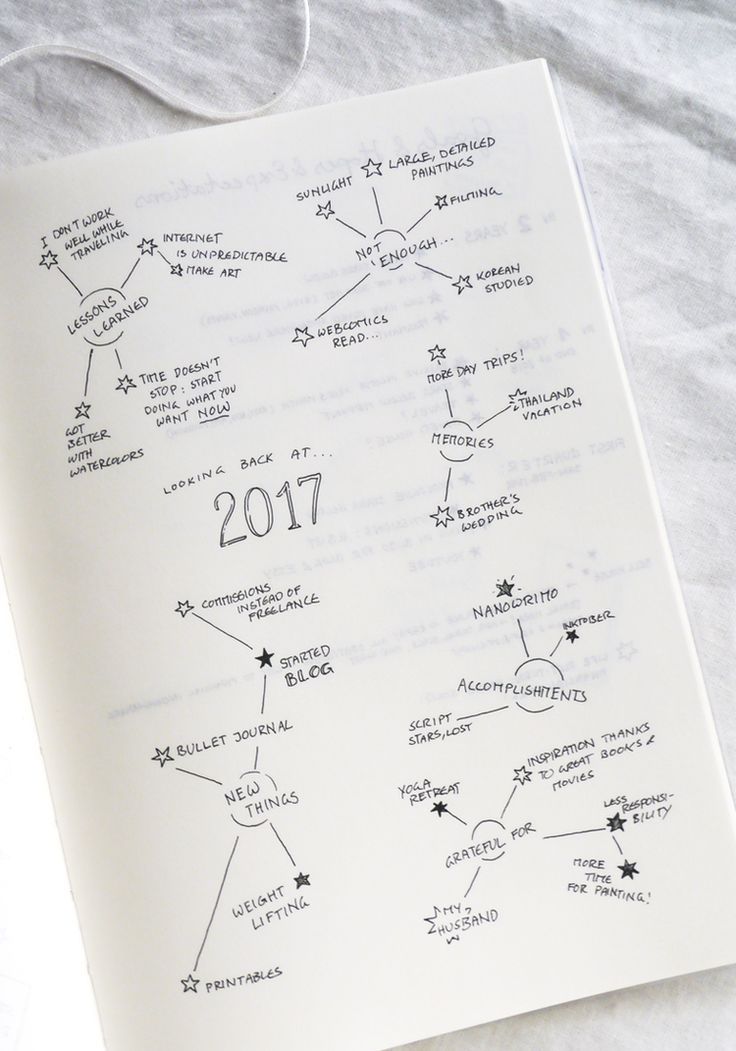 I DON'T WORK
WELL WHILE
TRAVELING
INTERNET
IS UNPREDICTABLE
MAKE ART
LESSONS
LEARNED
TIME DOESN'T
STOP: START
DOING WHAT YOU
WANT NOW
GOT
BETTER
WITH
WATERCOLORS
SUNLIGHT
LARGE, DETAILED
PAINTINGS
FILMING
NOT
ENOUGH...
KOREAN
STUDIED
WEBCOMICS
READ...
MORE DAY TRIPS!
THAILAND
VACATION
MEMORIES
BROTHER'S
WEDDING
LOOKING BACK AT...
2017
COMMISSIONS
INSTEAD OF
FREELANCE
STARTED
BLOG
BULLET JOURNAL
NEW
THINGS
WEIGHT
LIFTING
PRINTABLES
NANOWRIMO
INKTOBER
ACCOMPLISHMENTS
SCRIPT
STARS, LOST
YOGA
RETREAT
INSPIRATION THANKS
TO GREAT BOOKS &
MOVIES
GRATEFUL FOR
LESS
RESPONSI-
BILITY
MORE
TIME
FOR PAINTING!
MY
HUSBAND